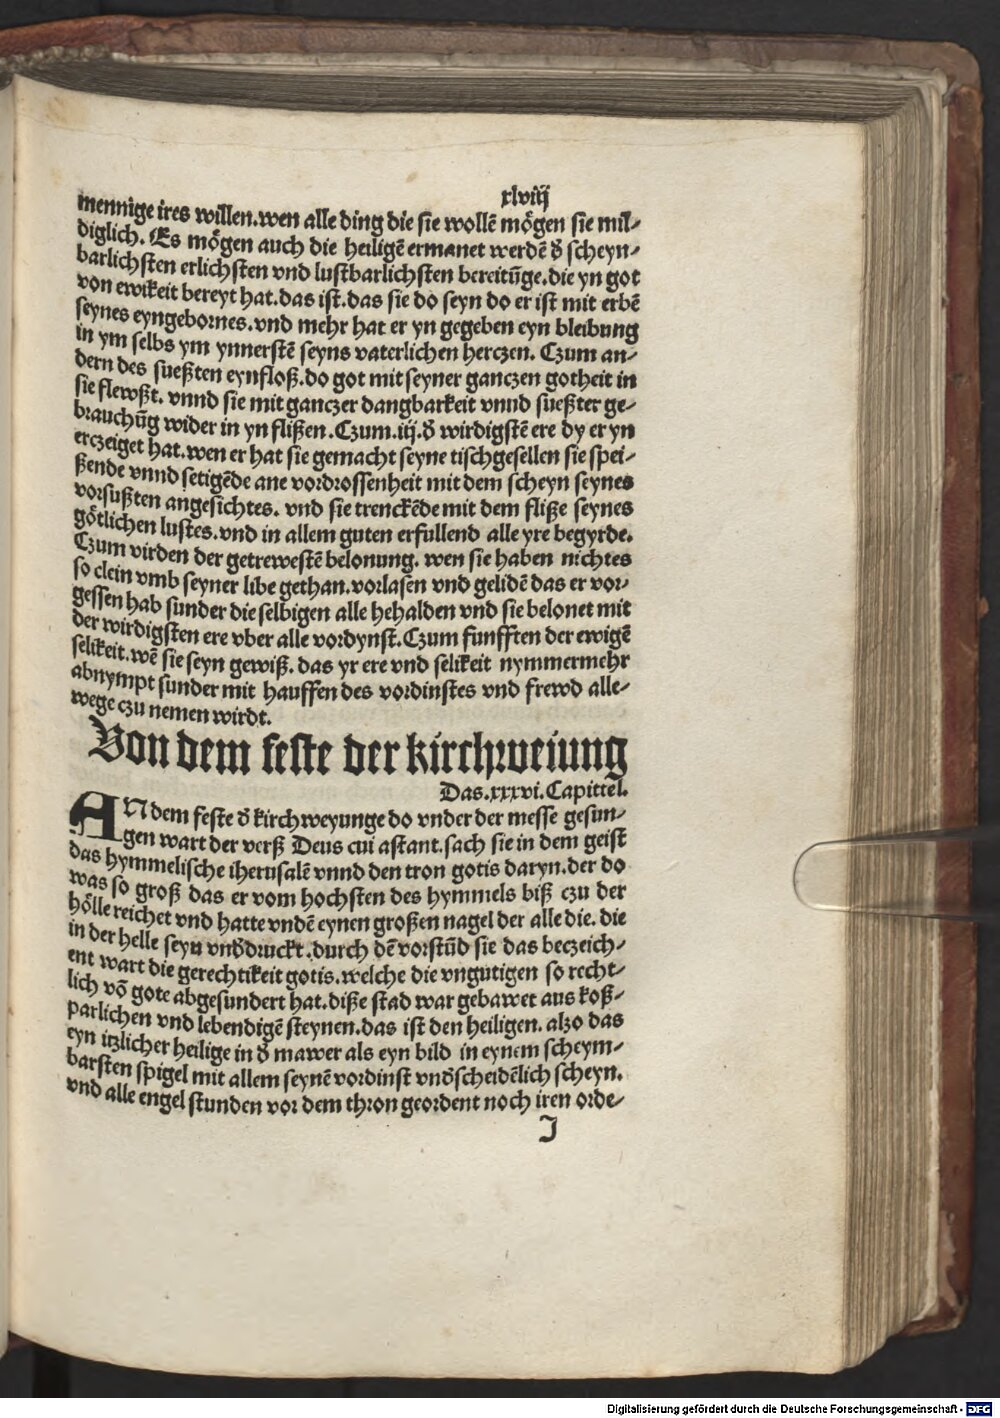 xlviij
mennige ires willen.wen alle ding die sie wollē mögen sie mil-
diglich. Es mögen auch die heiligē ermanet werdē d̕ scheyn-
barlichsten erlichsten vnd lustbarlichsten bereitūge.die yn got
von ewikeit bereyt hat.das ist.das sie do seyn do er ist mit erbē
seynes eyngebornes.vnd mehr hat er yn gegeben eyn bleibung
in ym selbs ym ynnerstē seyns vaterlichen herczen. Czum an-
dern des sueßten eynfloß.do got mit seyner ganczen gotheit in
sie flewßt. vnnd sie mit ganczer dangbarkeit vnnd sueßter ge-
brauchūg wider in yn flißen.Czum.iij.d̕ wirdigstē ere dy er yn
erczeiget hat.wen er hat sie gemacht seyne tischgesellen sie spei-
ßende vnnd setigēde ane vordrossenheit mit dem scheyn seynes
vorsußten angesichtes. vnd sie trenckēde mit dem fliße seynes
götlichen lustes.vnd in allem guten erfullend alle yre begyrde.
Czum virden der getrewestē belonung. wen sie haben nichtes
so clein vmb seyner libe gethan.vorlasen vnd gelidē das er vor-
gessen hab sunder die selbigen alle hehalden vnd sie belonet mit
der wirdigsten ere vber alle vordynst.Czum funfften der ewigē
selikeit.wē sie seyn gewiß. das yr ere vnd selikeit nymmermehr
abnympt sunder mit hauffen des vordinstes vnd frewd alle-
wege czu nemen wirdt.
Von dem feste der kirchweiung
Das.xxxvi.Capittel.
AN dem feste d̕ kirchweyunge do vnder der messe gesun-
gen wart der verß Deus cui astant.sach sie in dem geist
das hymmelische iherusalē vnnd den tron gotis daryn.der do
was so groß das er vom hochsten des hymmels biß czu der
hölle reichet vnd hatte vndē eynen großen nagel der alle die. die
in der helle seyn vnd̕druckt.durch dē vorstūd sie das beczeich-
ent wart die gerechtikeit gotis.welche die vngutigen so recht-
lich vō gote abgesundert hat.diße stad war gebawet aus koß-
parlichen vnd lebendigē steynen.das ist den heiligen. alzo das
eyn itzlicher heilige in d̕ mawer als eyn bild in eynem scheym-
barsten spigel mit allem seynē vordinst vnd̕scheidēlich scheyn.
vnd alle engel stunden vor dem thron geordent noch iren orde-
J
Digitalisierung gefördert durch die Deutsche Forschungsgemeinschaft - DFG